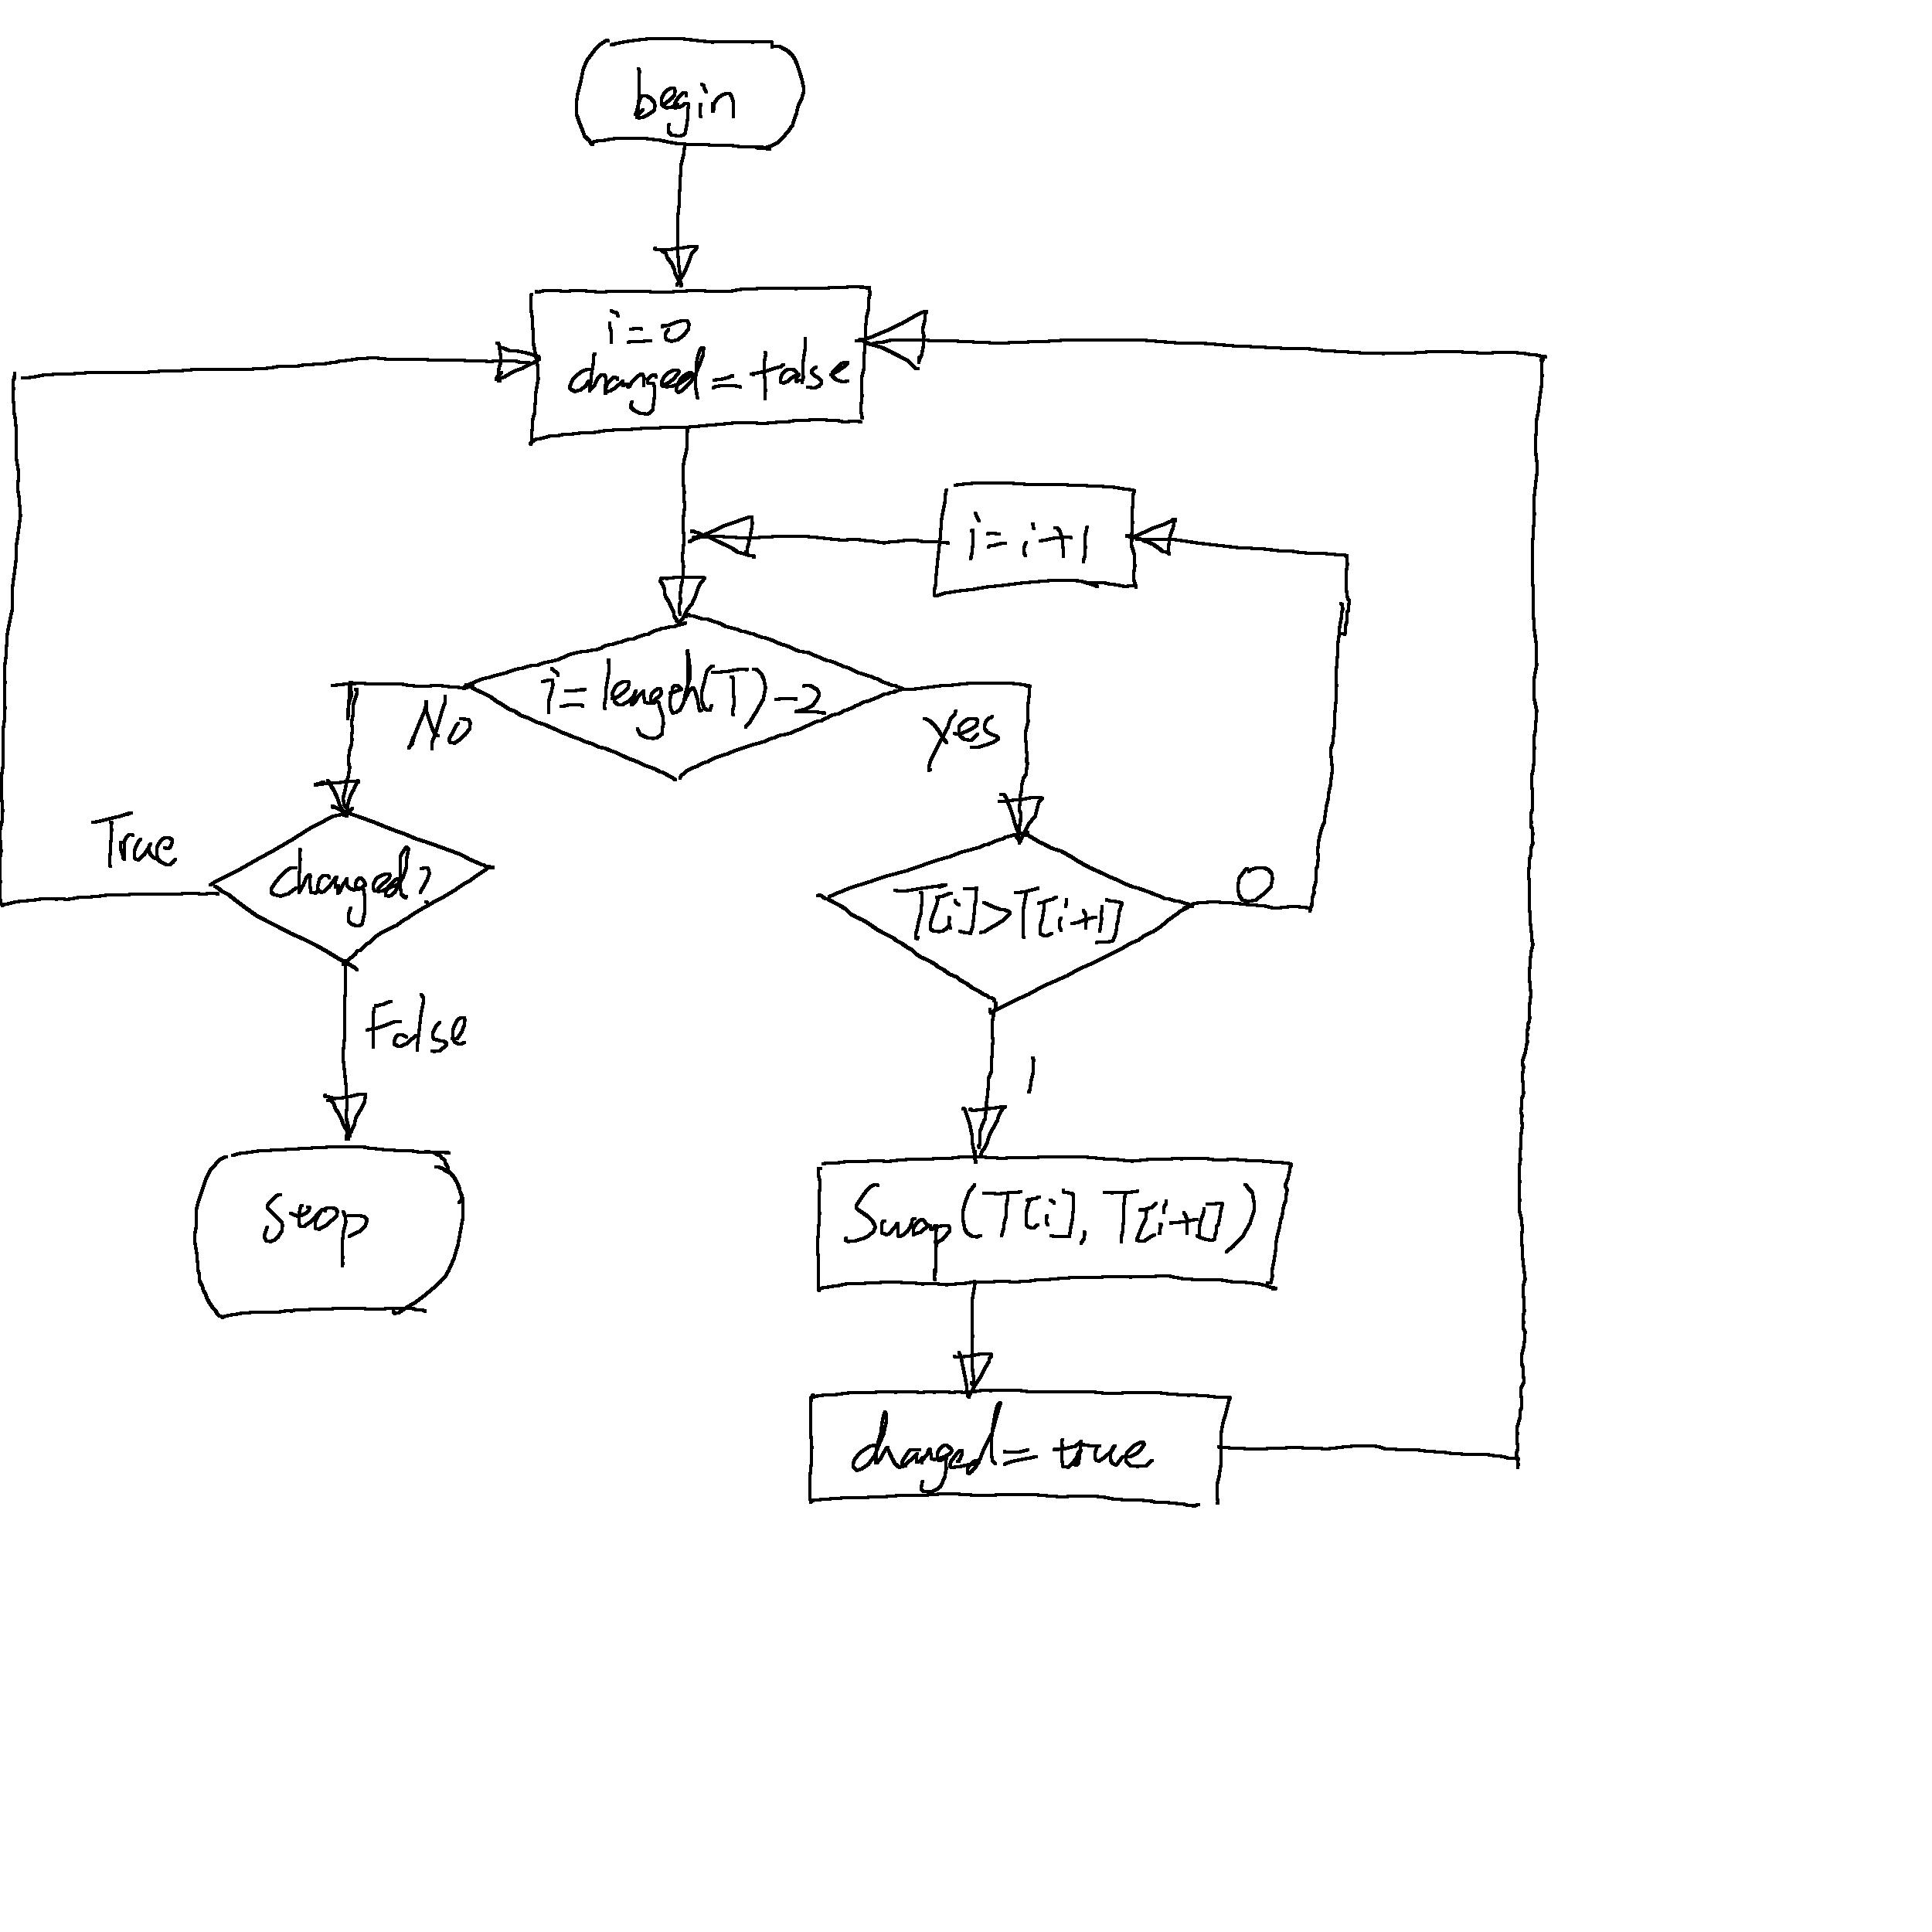 begin
i=0
changed=false
i=i+1
i=length(T)-2
No
yes
True
changed?
T[i]>T[i+1]
0
False
1
stop
Swap(T[i], T[i+1])
changed=true